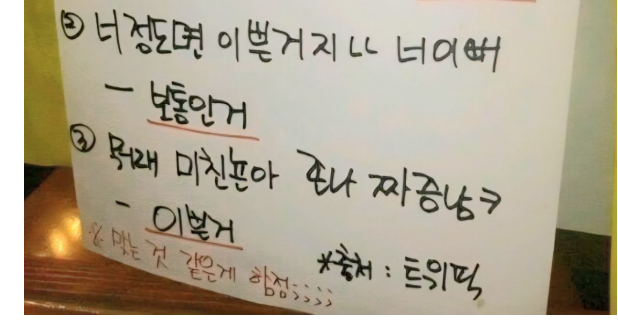 ② 너정도면 이쁜거지 ㄴㄴ 너이뻐
- 보통인거
③ 뭐래 미친뇬아 존나 짜증남ㅋ
- 이쁠거
※ 맞는 것 같은게 함정;;;;
*출처 : 트위픽